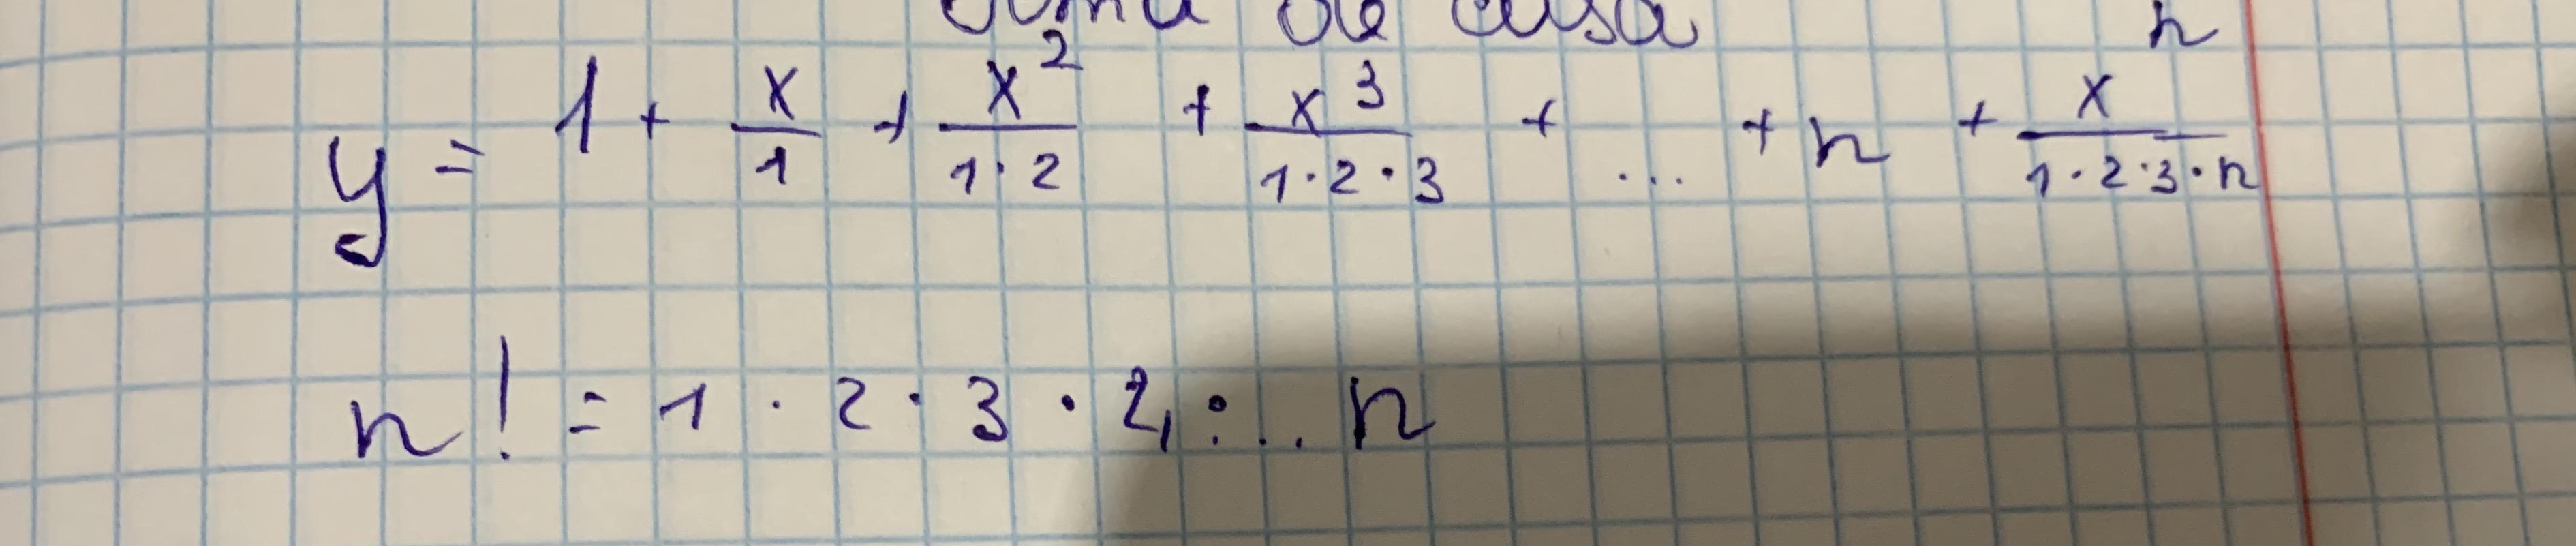 Tema de casa
y = 1 + x/1 + x²/1·2 + x³/1·2·3 + ... + n + xⁿ/1·2·3·n
n! = 1 · 2 · 3 · 4 · ... n